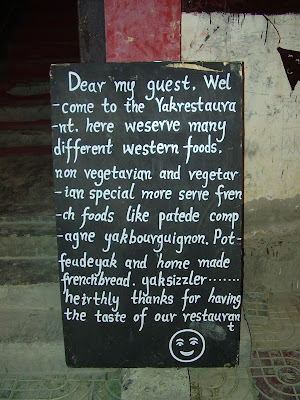 Dear my guest, Wel
-come to the Yakrestaura
-nt. here weserve many
different western foods.
non vegetavian and vegetar
-ian special more serve fren
-ch foods like patede comp
-agne yakbourguignon. Pot-
feudeyak and home made
frenchbread. yaksizzler.......
heirthly thanks for having
the taste of our restauran
t